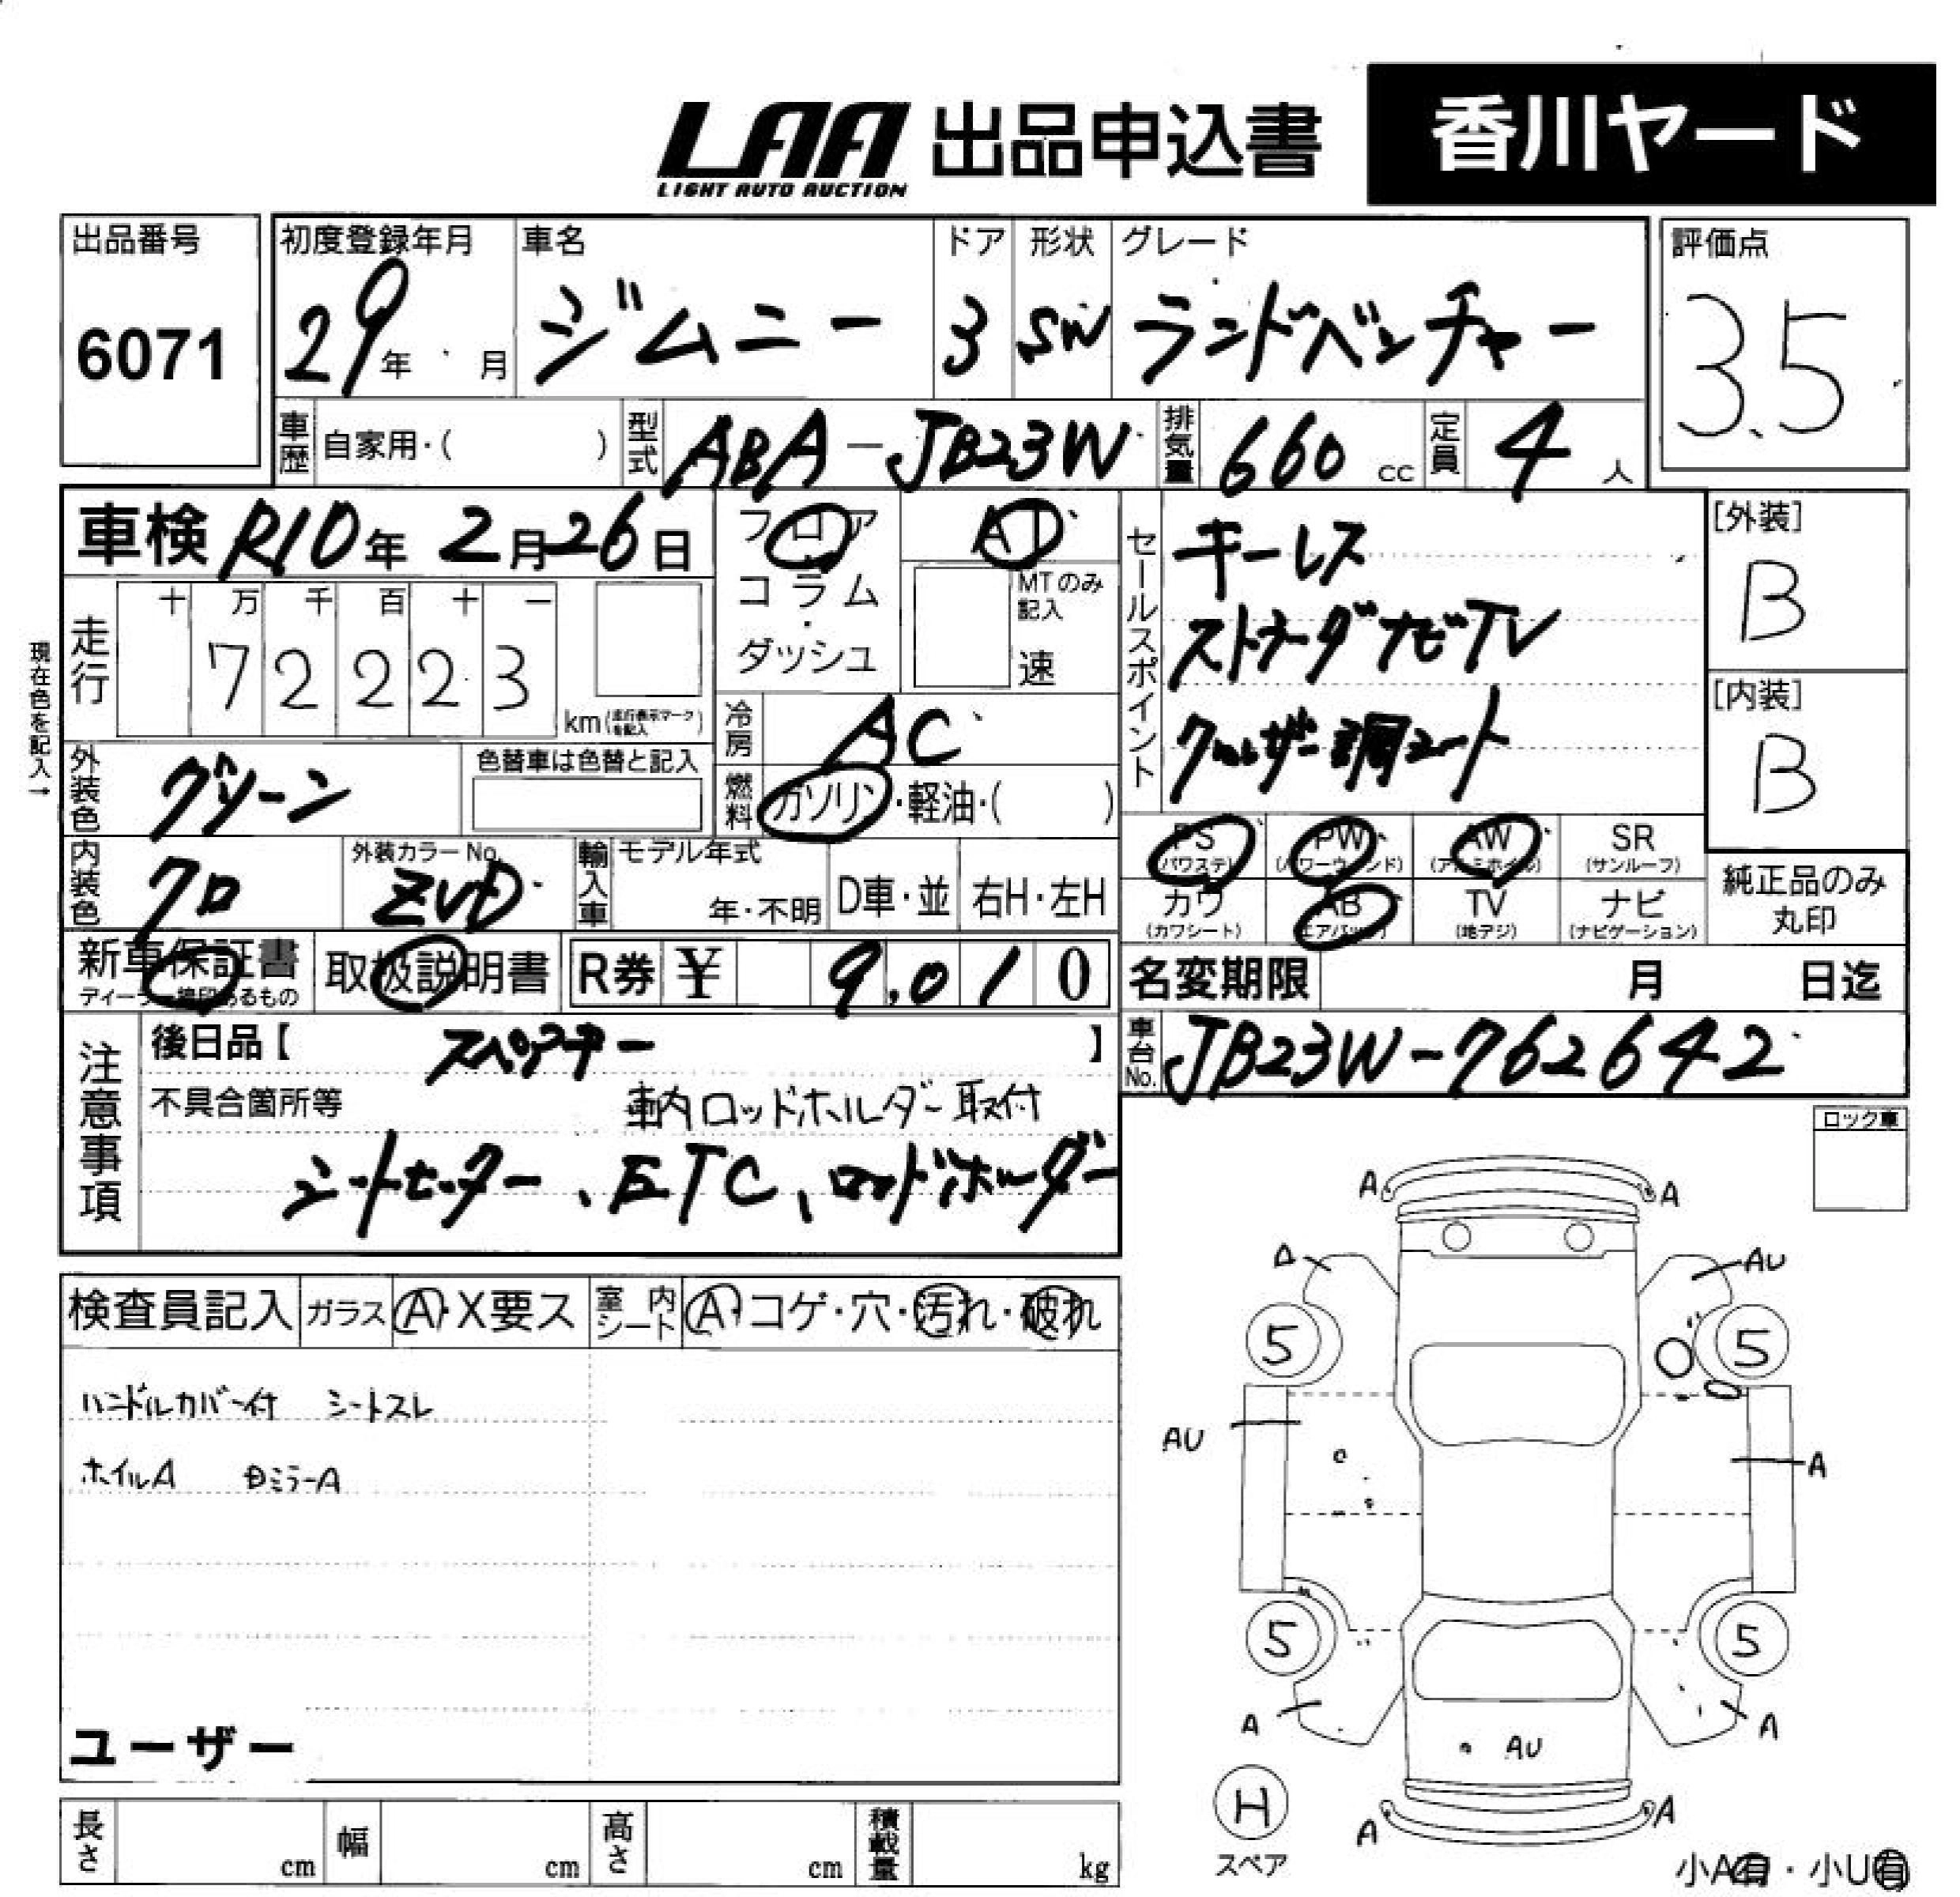 LAA 出品申込書 香川ヤード
LIGHT AUTO AUCTION
出品番号 初度登録年月 車名 ドア 形状 グレード 評価点
6071 29年 月 ジムニー 3 SW ランドベンチャー 3.5
車歴 自家用・( ) 型式 ABA-JB23W 排気量 660cc 定員 4人
車検 R10年 2月26日 フロア AT
コラム
・
ダッシュ
MTのみ記入
速
セールスポイント
キーレス
ストラーダナビTV
クルーザー調シート
[外装]
B
[内装]
B
現在色を記入→
走行 十 万 千 百 十 一
7 2 2 2 3
km(走行表示マークを記入)
冷房 AC
外装色 グリーン 色替車は色替と記入
燃料 ガソリン・軽油・( )
PS PW AW SR
(パワステ) (パワーウィンド) (アルミホイル) (サンルーフ)
カワ AB TV ナビ
(カワシート) (エアバック) (地デジ) (ナビゲーション)
純正品のみ
丸印
内装色 クロ 外装カラーNo. ZVD 輸入車 モデル年式 年・不明 D車・並 右H・左H
新車保証書 取扱説明書 R券 ¥ 9,010
ディーラー捺印あるもの
名変期限 月 日迄
車台No. JB23W-762642
注意事項
後日品【 スペアキー 】
不具合箇所等 車内ロッドホルダー取付
シートヒーター、ETC、ロッドホルダー
ロック車
検査員記入 ガラス A・X要ス 室内シート A・コゲ・穴・汚れ・破れ
ハンドルカバー付 シートスレ
ホイルA BミラーA
ユーザー
長さ cm 幅 cm 高さ cm 積載量 kg
A A
A AU
5 5
AU A
5 5
A A
AU
H
スペア
A A
小A有・小U有